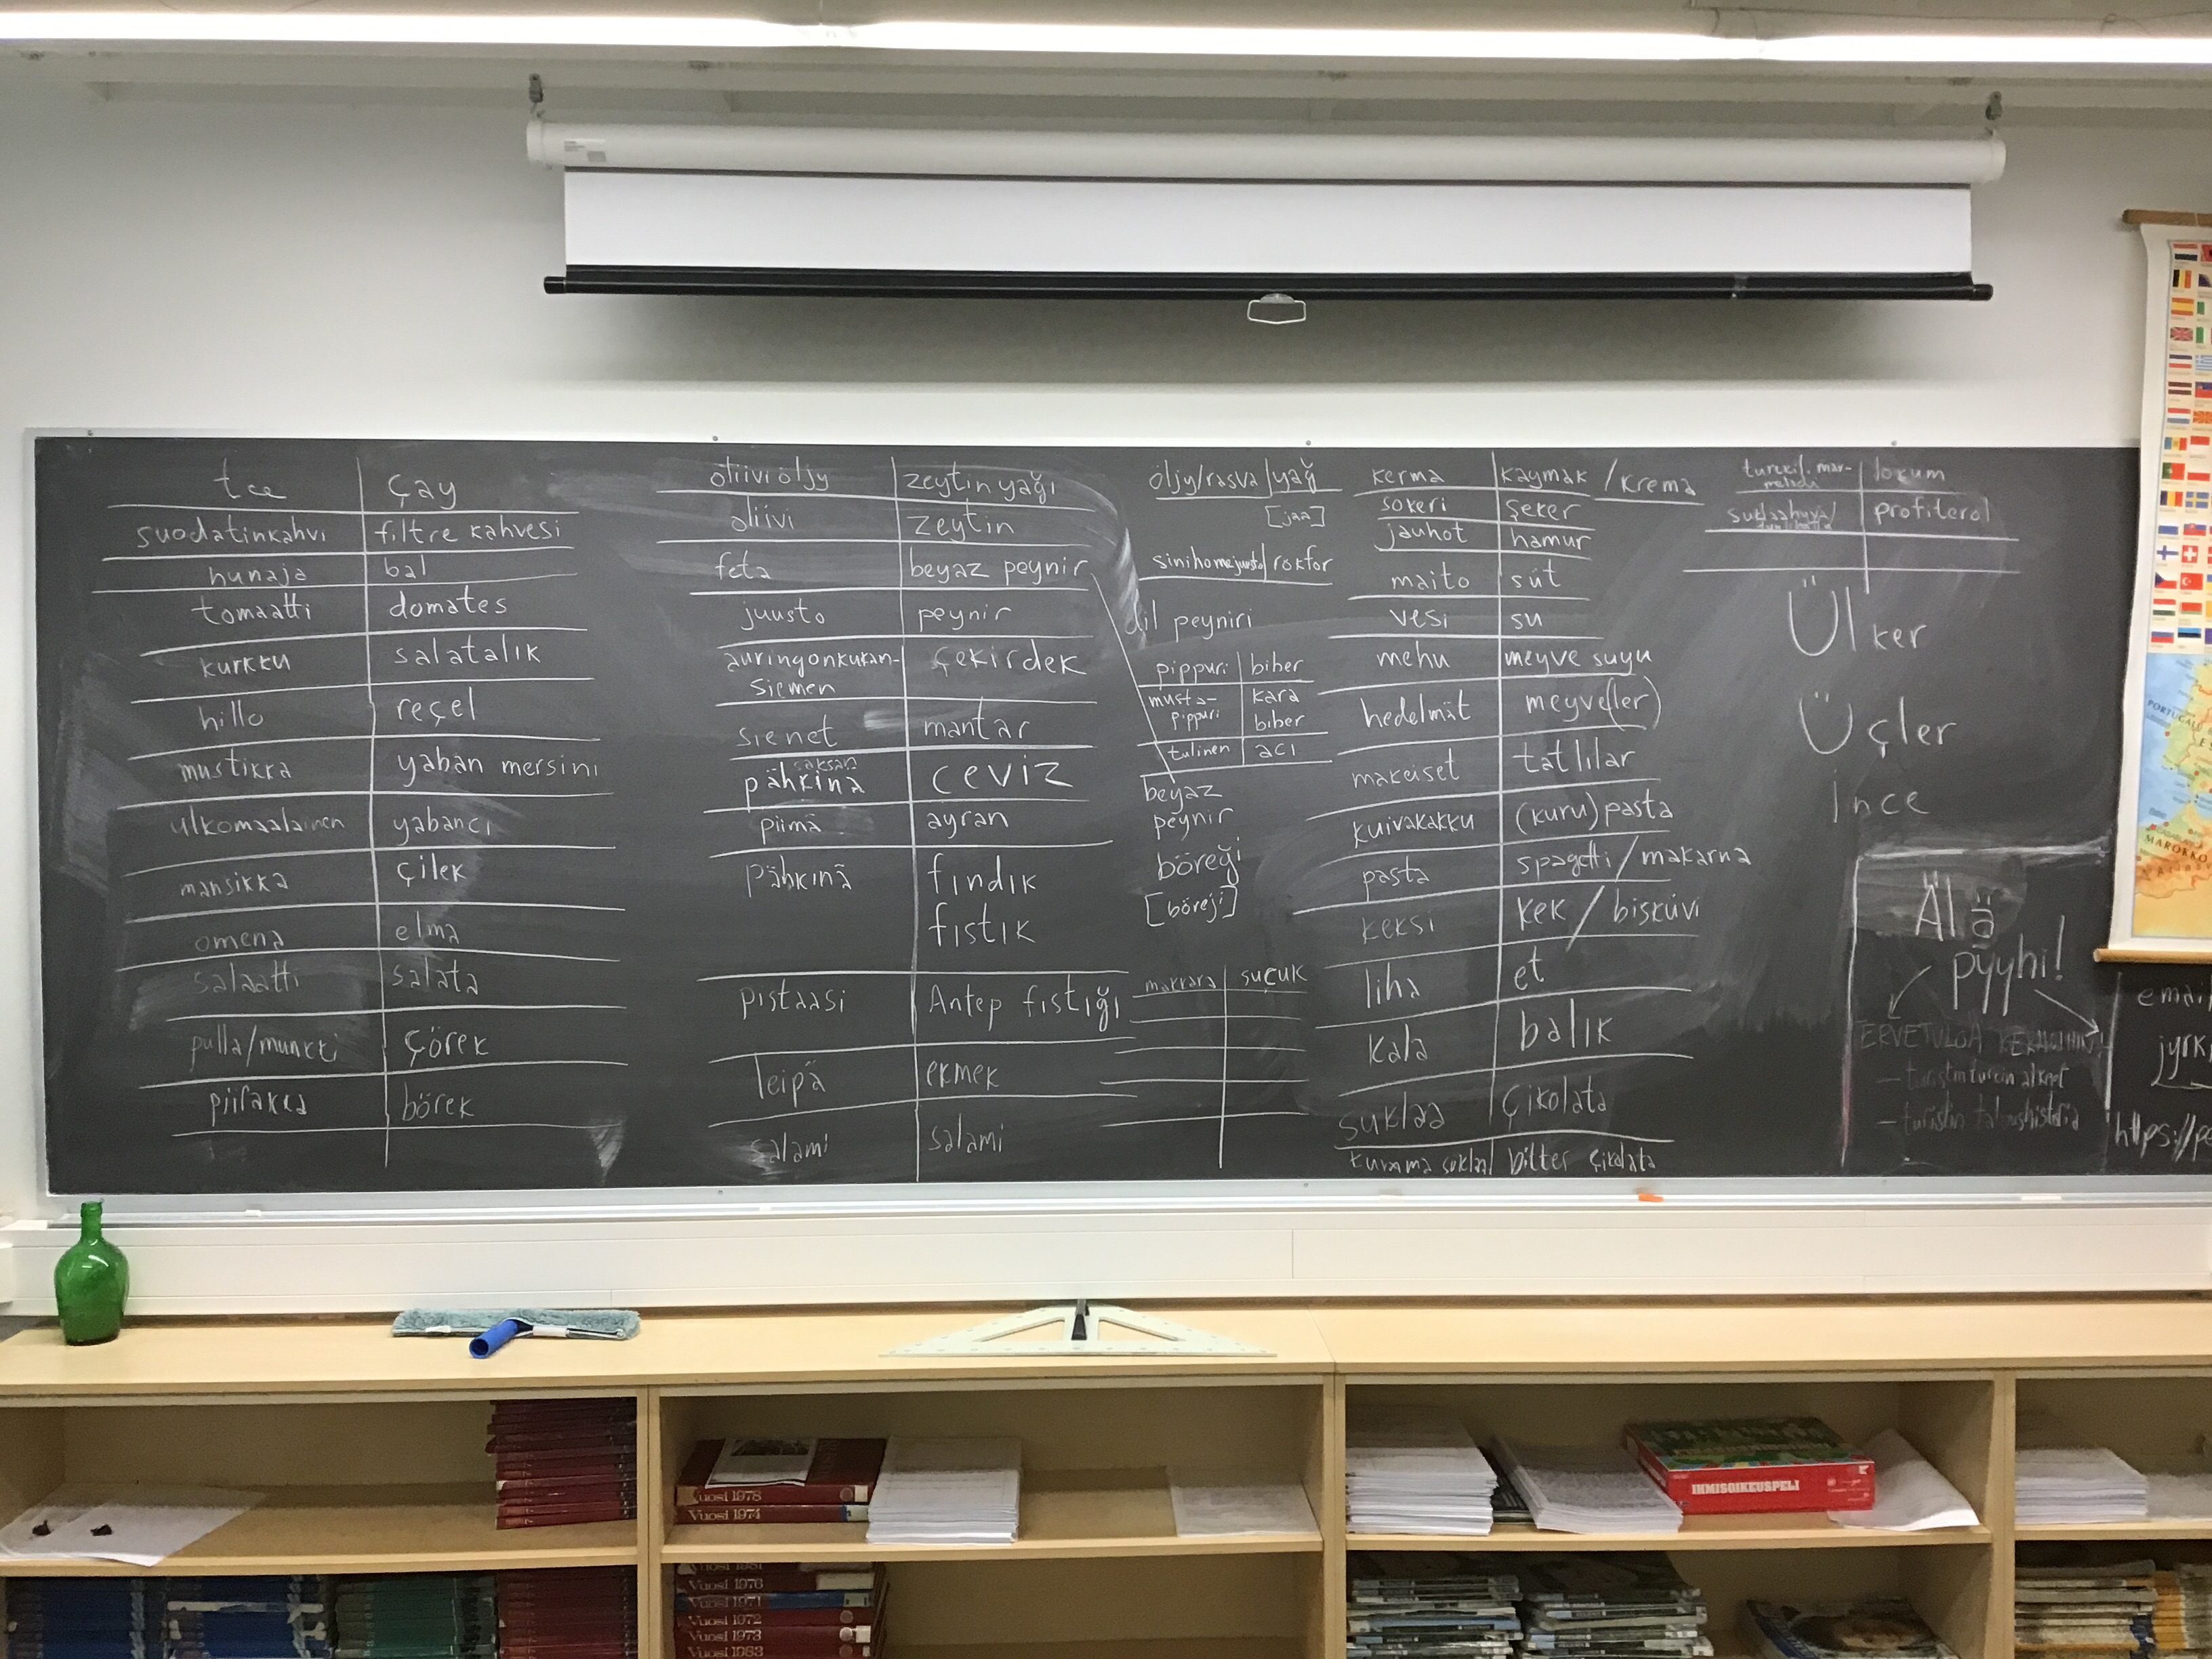 tee çay
suodatinkahvi filtre kahvesi
hunaja bal
tomaatti domates
kurkku salatalık
hillo reçel
mustikka yaban mersini
ulkomaalainen yabancı
mansikka çilek
omena elma
salaatti salata
pulla/munkki çörek
piirakka börek
oliiviöljy zeytin yağı
oliivi zeytin
feta beyaz peynir
juusto peynir
auringonkukan- çekirdek
siemen
sienet mantar
saksan
pähkinä ceviz
piimä ayran
pähkinä fındık
fıstık
pistaasi Antep fıstığı
leipä ekmek
salami salami
öljy/rasva yağ
[jaa]
sinihomejuusto rokfor
dil peyniri
pippuri biber
musta- kara
pippuri biber
tulinen acı
beyaz
peynir
böreği
[böreji]
makkara suçuk
kerma kaymak / krema
sokeri şeker
jauhot hamur
maito süt
vesi su
mehu meyve suyu
hedelmät meyve(ler)
makeiset tatlılar
kuivakakku (kuru) pasta
pasta spagetti / makarna
keksi kek / bisküvi
liha et
kala balık
suklaa çikolata
tumma suklaa bitter çikolata
turkkil. mar- lokum
meladi
profiterol
Ülker
Üçler
İnce
Älä
pyyhi!
TERVETULOA
— turistin turkin alkeet
— turistin taloushistoria
email
jyrk
https://pe
IHMISOIKEUSPELI
Vuosi 1978
Vuosi 1974
Vuosi 1981
Vuosi 1976
Vuosi 1971
Vuosi 1972
Vuosi 1973
Vuosi 1983
PORTUGALI
MAROKKO